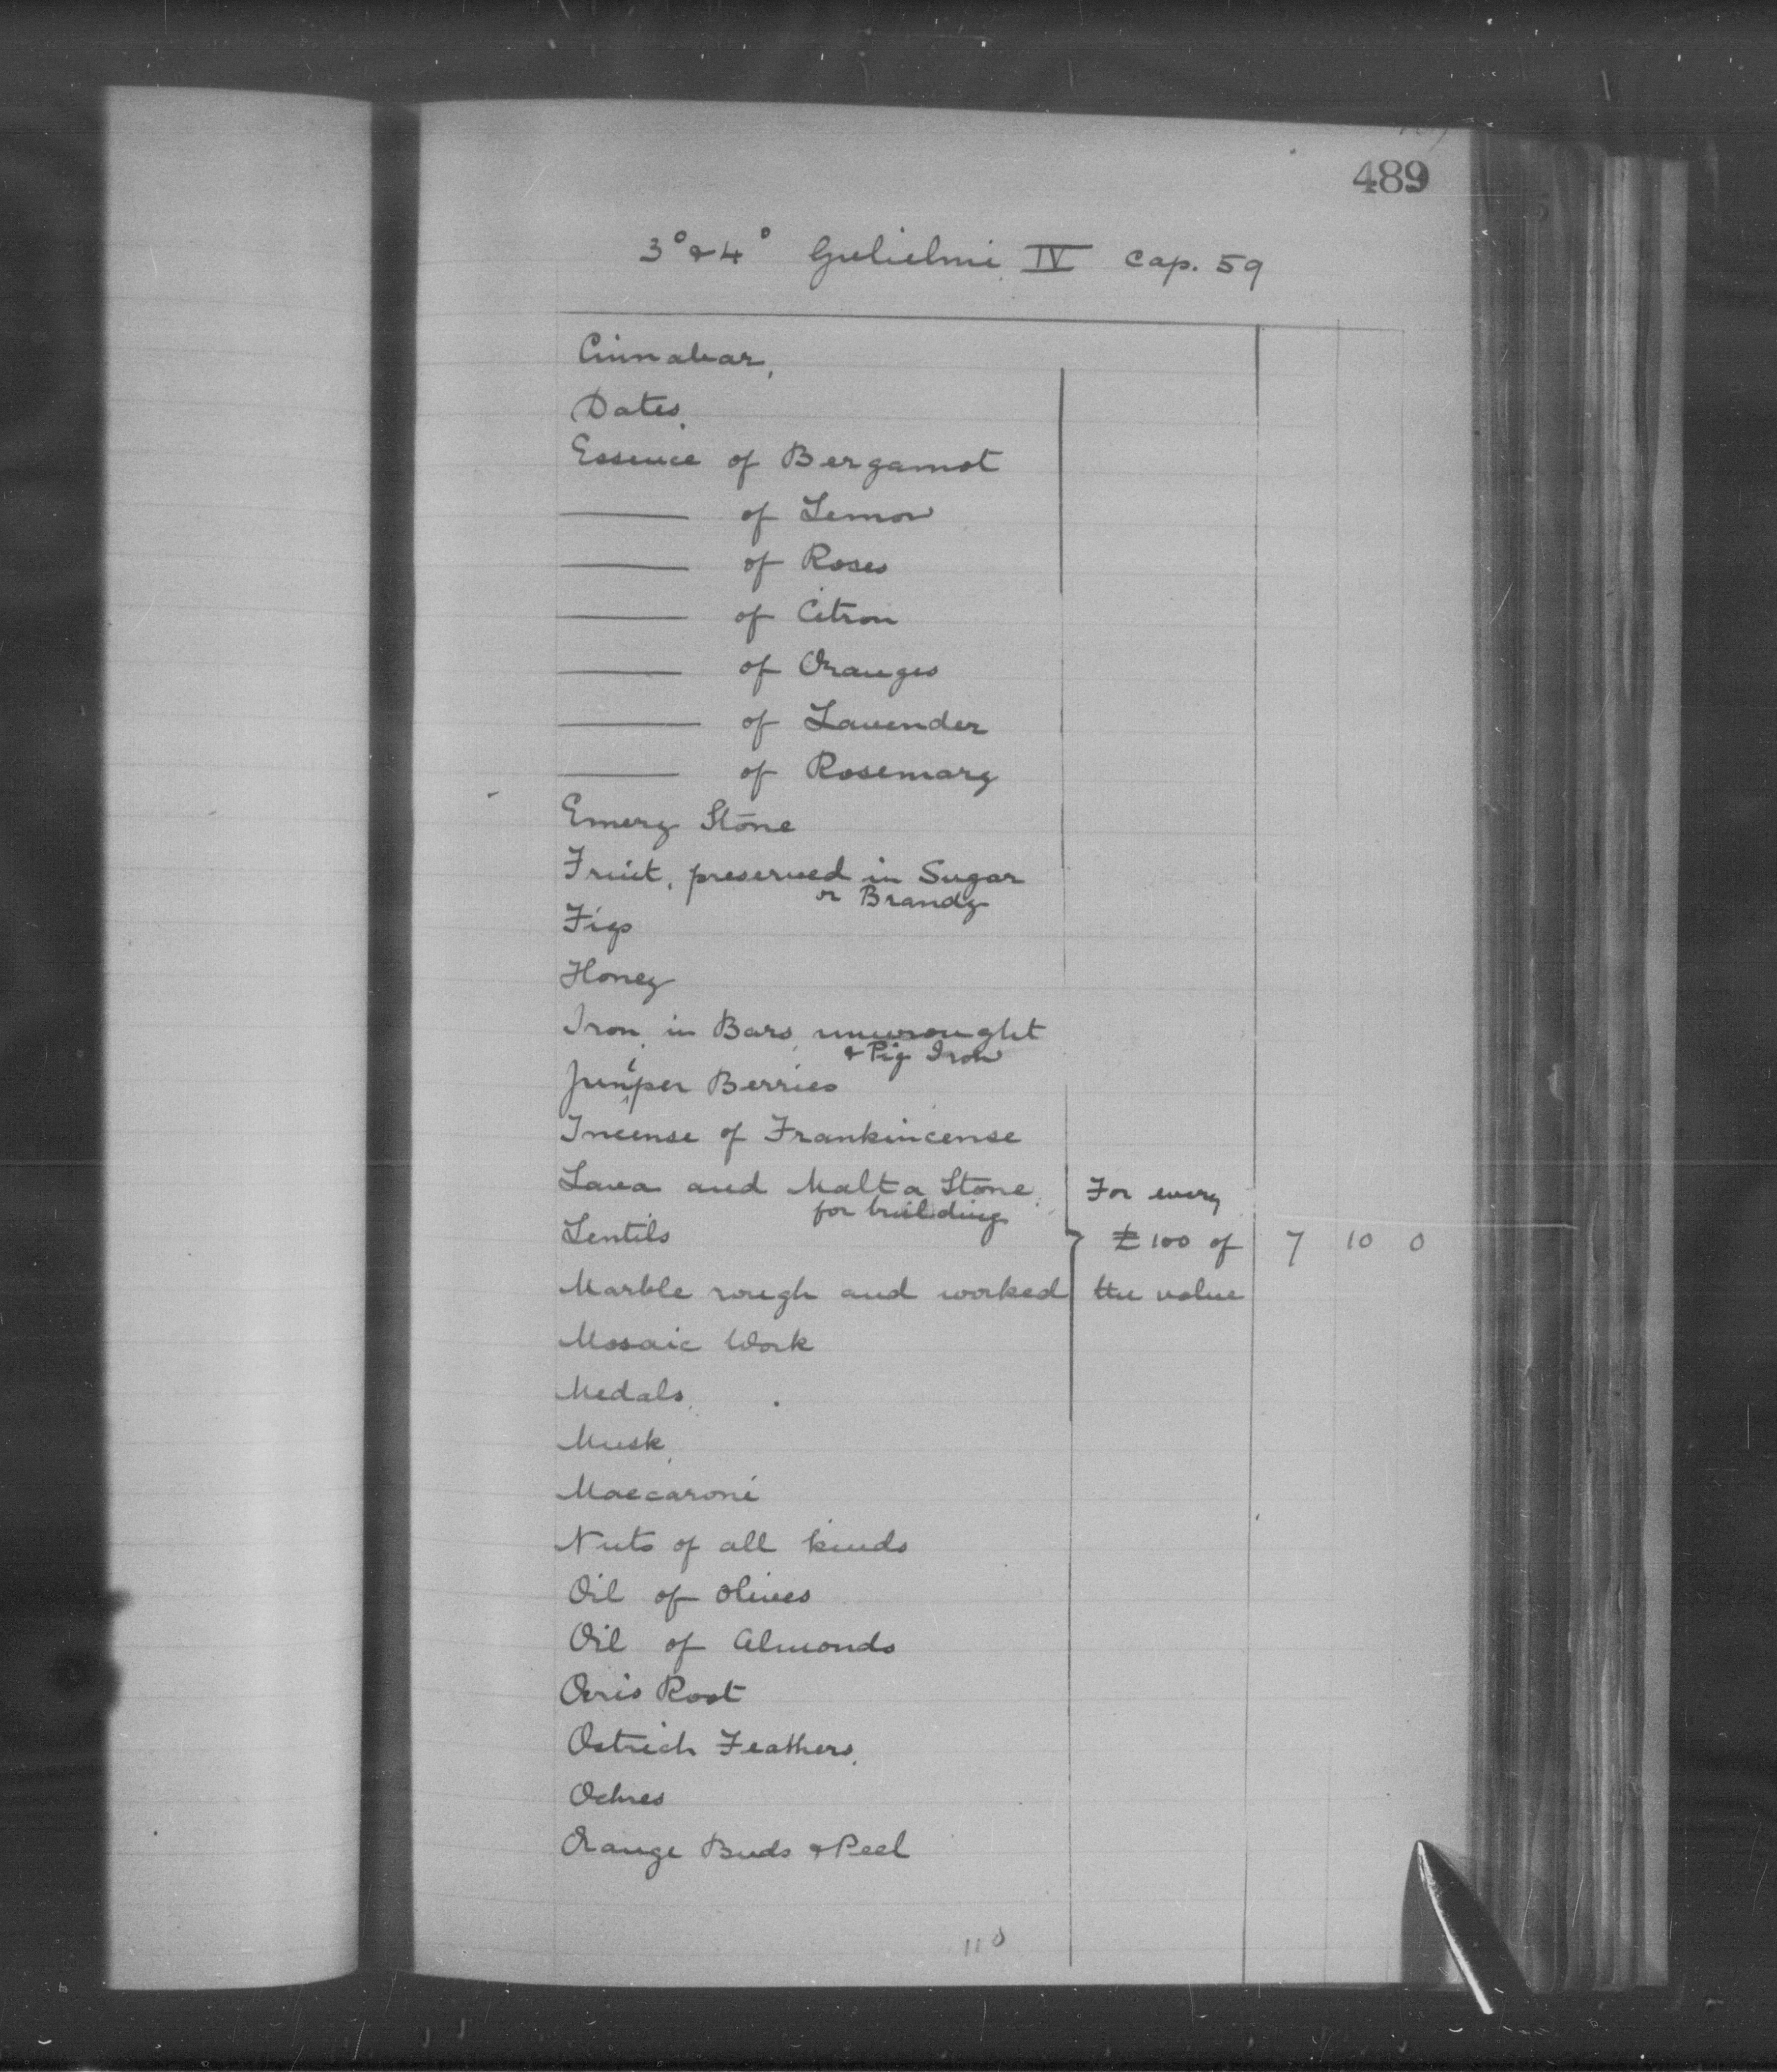 489
3° & 4° Gulielmi IV cap. 59
Cinnabar,
Dates,
Essence of Bergamot
——— of Lemon
——— of Roses
——— of Citron
——— of Oranges
——— of Lavender
——— of Rosemary
Emery Stone
Fruit, preserved in Sugar
or Brandy
Figs
Honey
Iron, in Bars, unwrought
& Pig Iron
Juniper Berries
Incense of Frankincense
Lava and Malta Stone For every
for building
Lentils £100 of 7 10 0
Marble rough and worked the value
Mosaic Work
Medals,
Musk,
Maccaroni
Nuts of all kinds
Oil of Olives
Oil of Almonds
Orris Root
Ostrich Feathers,
Ochres
Orange Buds & Peel